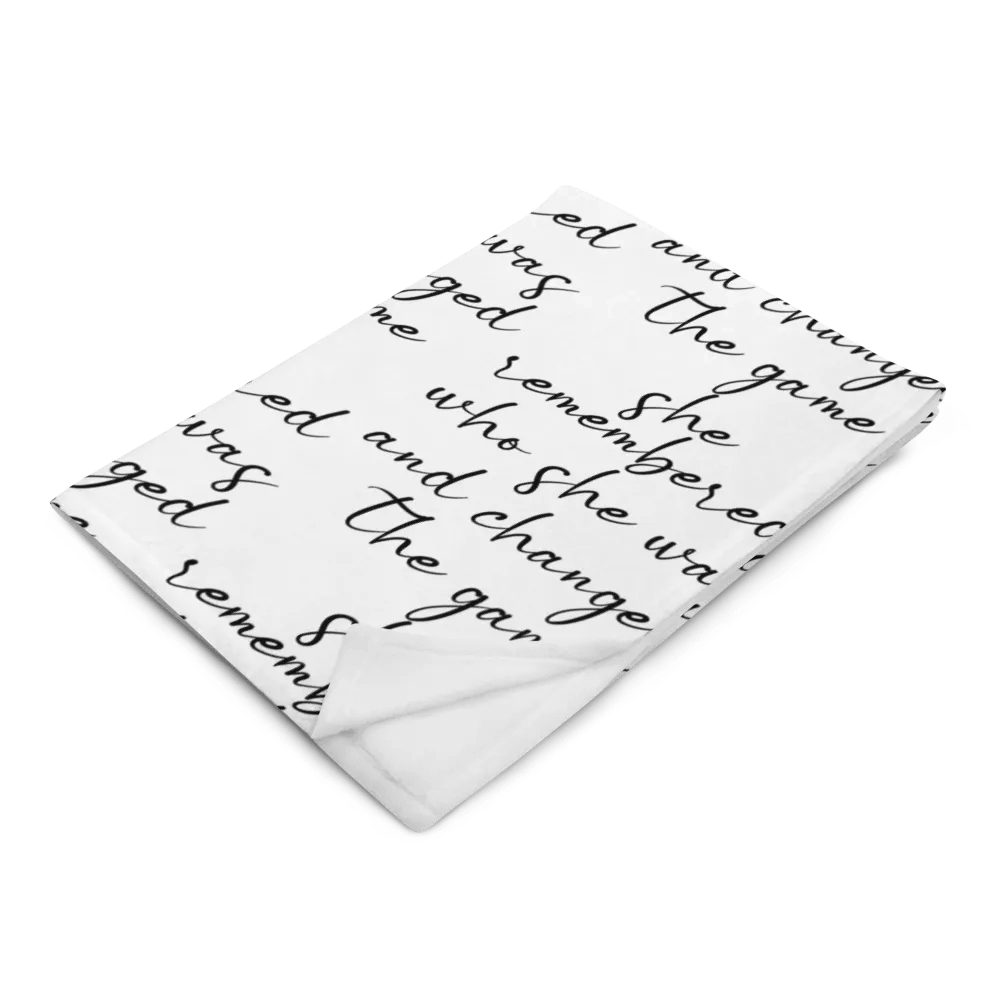 ed and change
was
the game
ged
me
she
remembere
who she wa
ed and change
was
the gar
ged
rememb